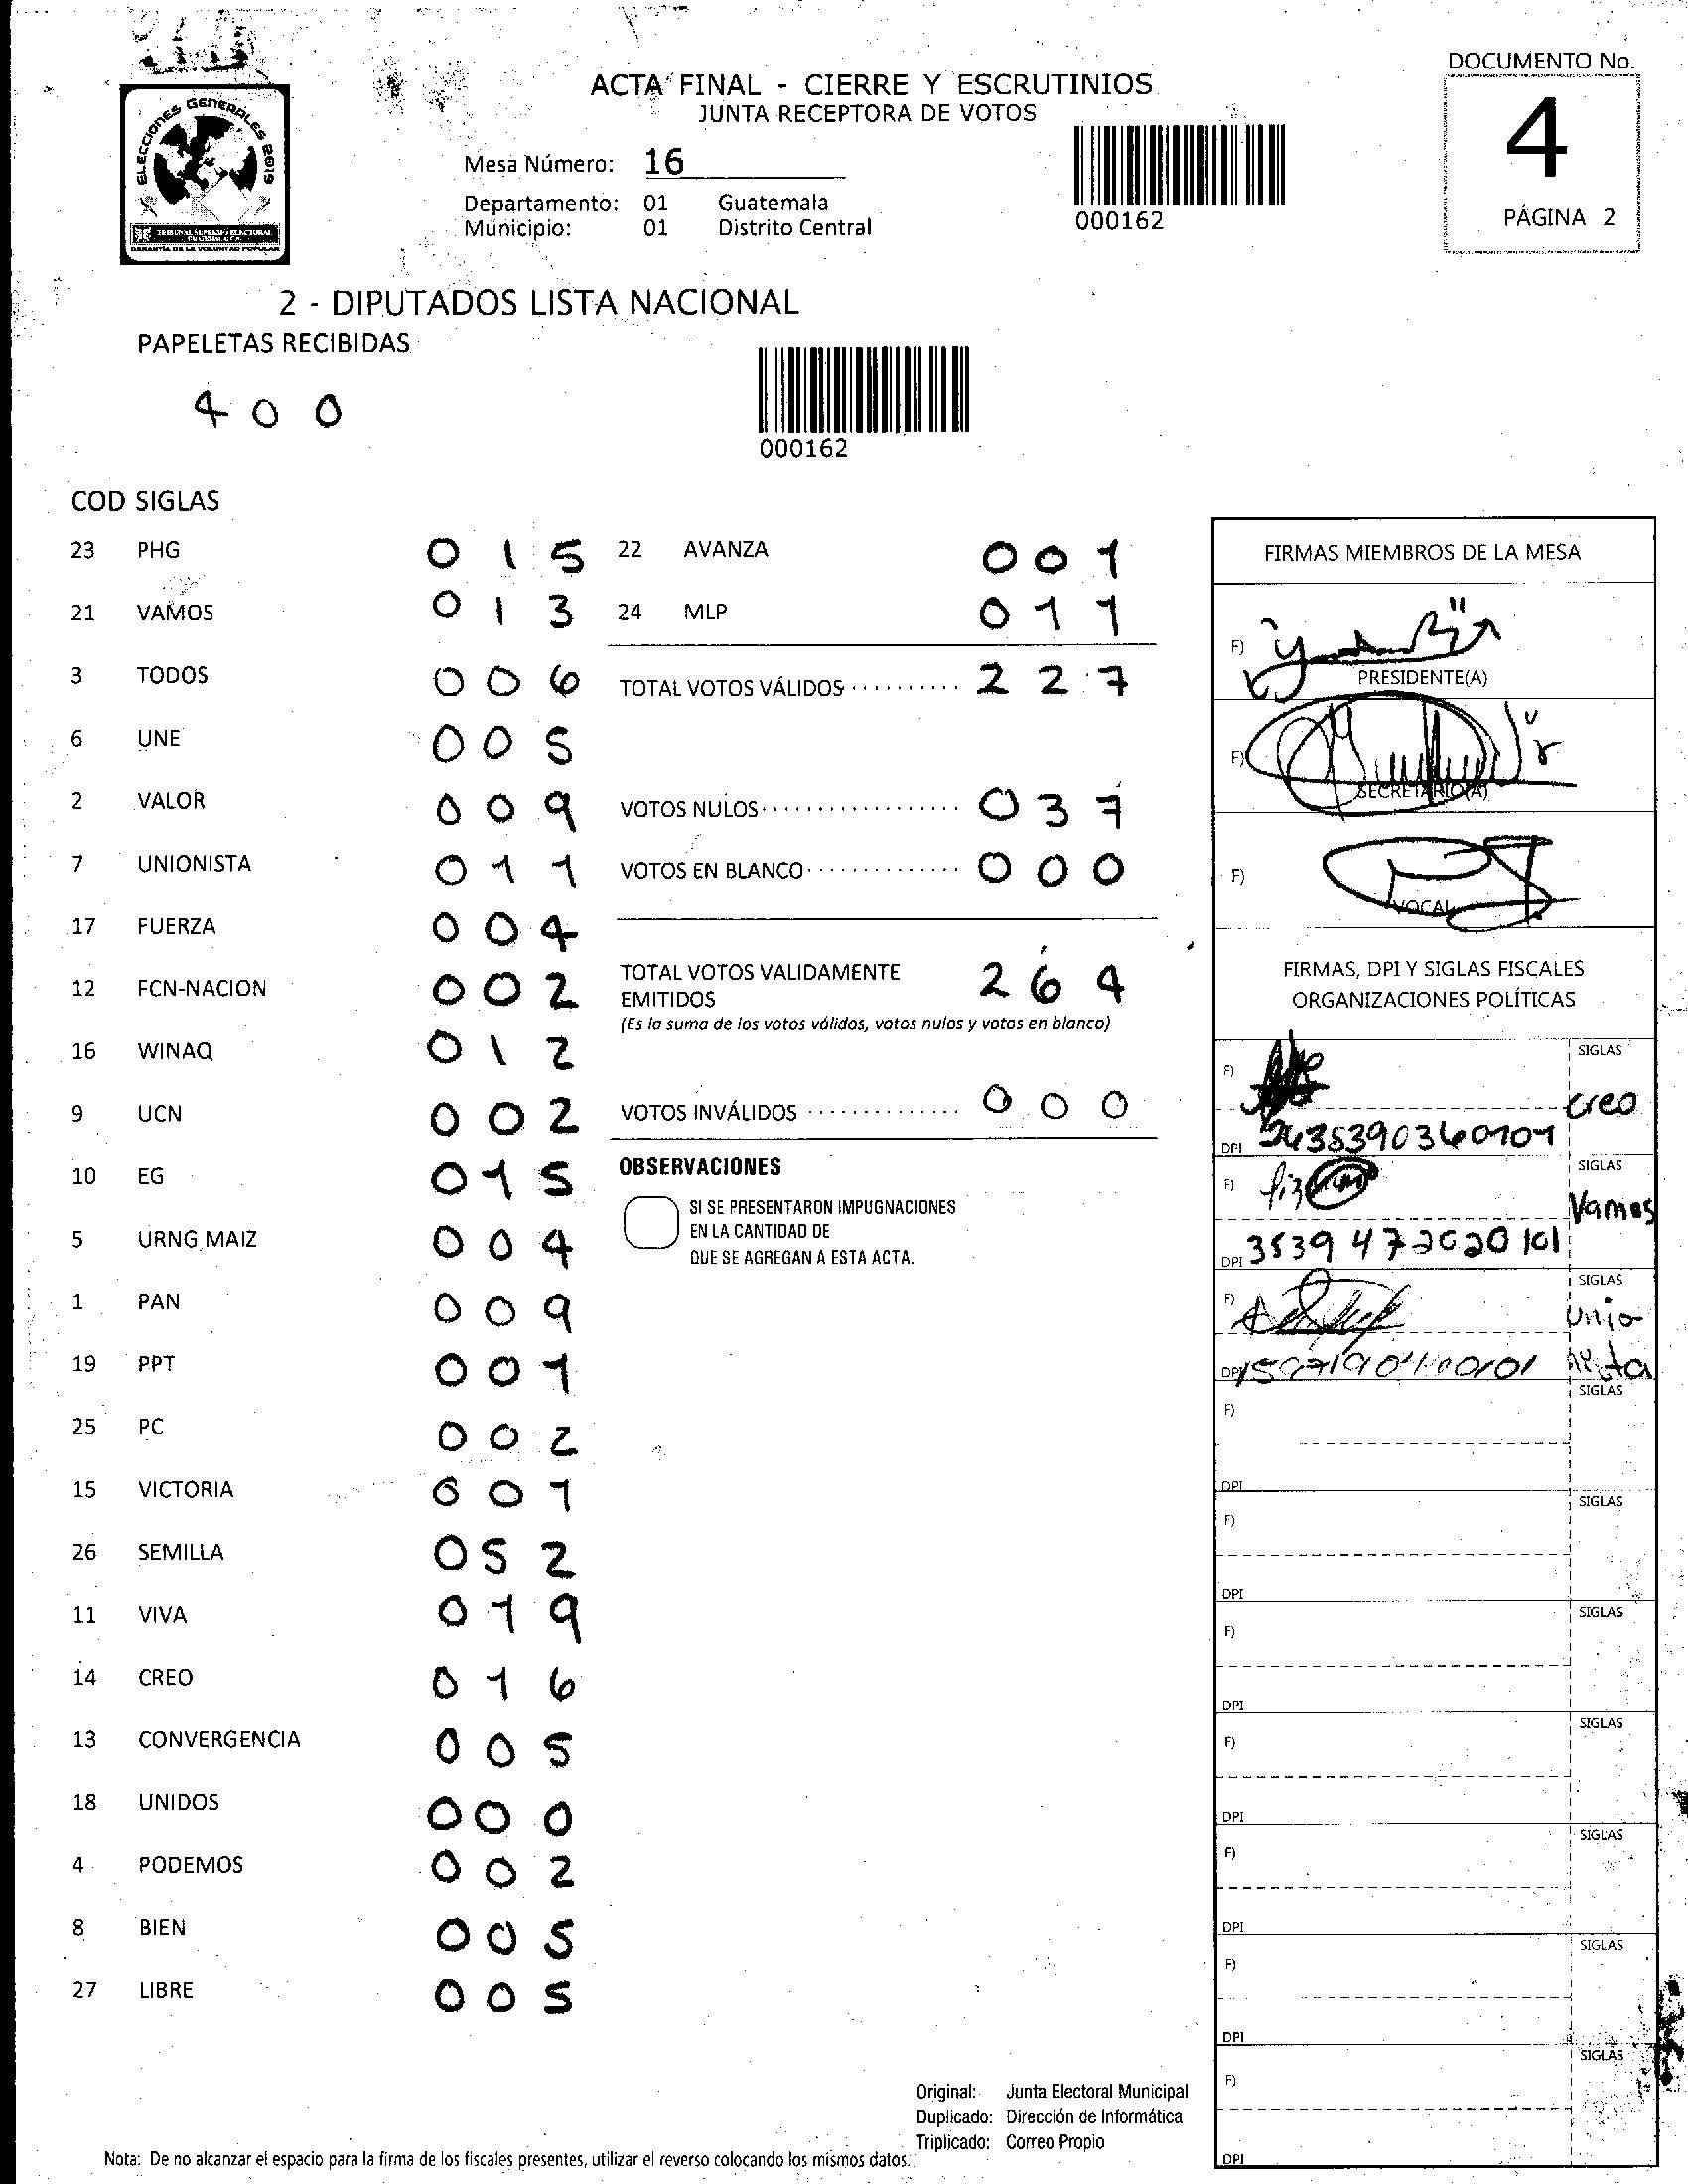 ELECCIONES GENERALES 2019
ACTA FINAL - CIERRE Y ESCRUTINIOS
JUNTA RECEPTORA DE VOTOS
DOCUMENTO No.
4
PÁGINA 2
Mesa Número: 16
Departamento: 01 Guatemala
Municipio: 01 Distrito Central
000162
2 - DIPUTADOS LISTA NACIONAL
PAPELETAS RECIBIDAS
4 0 0
000162
COD SIGLAS
23 PHG 0 1 5
21 VAMOS 0 1 3
3 TODOS 0 0 6
6 UNE 0 0 5
2 VALOR 0 0 9
7 UNIONISTA 0 1 1
17 FUERZA 0 0 4
12 FCN-NACION 0 0 2
16 WINAQ 0 1 2
9 UCN 0 0 2
10 EG 0 1 5
5 URNG MAIZ 0 0 4
1 PAN 0 0 9
19 PPT 0 0 1
25 PC 0 0 2
15 VICTORIA 0 0 1
26 SEMILLA 0 5 2
11 VIVA 0 1 9
14 CREO 0 1 6
13 CONVERGENCIA 0 0 5
18 UNIDOS 0 0 0
4 PODEMOS 0 0 2
8 BIEN 0 0 5
27 LIBRE 0 0 5
22 AVANZA 0 0 1
24 MLP 0 1 1
TOTAL VOTOS VÁLIDOS .......... 2 2 7
VOTOS NULOS .................. 0 3 7
VOTOS EN BLANCO .............. 0 0 0
TOTAL VOTOS VALIDAMENTE EMITIDOS 2 6 4
(Es la suma de los votos válidos, votos nulos y votos en blanco)
VOTOS INVÁLIDOS .............. 0 0 0
OBSERVACIONES
SI SE PRESENTARON IMPUGNACIONES
EN LA CANTIDAD DE
QUE SE AGREGAN A ESTA ACTA.
FIRMAS MIEMBROS DE LA MESA
F)
PRESIDENTE(A)
F)
SECRETARIO(A)
F)
VOCAL
FIRMAS, DPI Y SIGLAS FISCALES
ORGANIZACIONES POLÍTICAS
F) SIGLAS
creo
DPI
F) SIGLAS
Vamos
DPI
F) SIGLAS
Unio
DPI nista
F) SIGLAS
DPI
F) SIGLAS
DPI
F) SIGLAS
DPI
F) SIGLAS
DPI
F) SIGLAS
DPI
F) SIGLAS
DPI
F) SIGLAS
DPI
Original: Junta Electoral Municipal
Duplicado: Dirección de Informática
Triplicado: Correo Propio
Nota: De no alcanzar el espacio para la firma de los fiscales presentes, utilizar el reverso colocando los mismos datos.